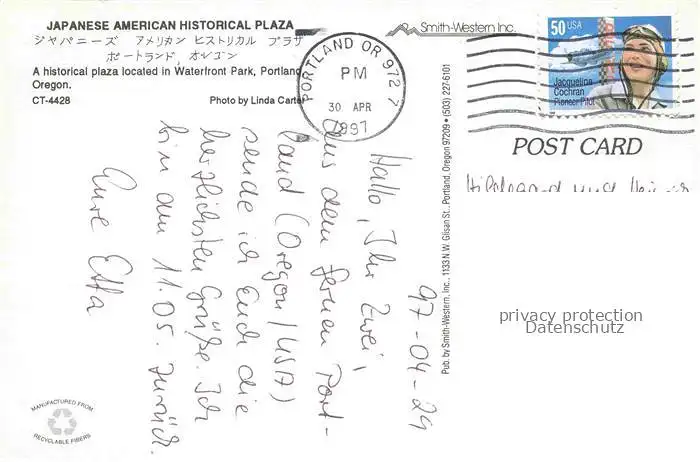 JAPANESE AMERICAN HISTORICAL PLAZA
ジャパニーズ アメリカン ヒストリカル プラザ
ポートランド, オレゴン
A historical plaza located in Waterfront Park, Portland
Oregon.
CT-4428 Photo by Linda Carter
Smith-Western Inc.
PORTLAND OR 9727
PM
30 APR
1997
50 USA
Jacqueline
Cochran
Pioneer Pilot
POST CARD
Pub. by Smith-Western, Inc., 1133 N.W. Glisan St., Portland, Oregon 97209 • (503) 227-6101
97-04-29
Hallo, Ihr Zwei,
aus dem fernen Port-
land (Oregon/USA)
sende ich Euch die
herzlichsten Grüße. Ich
bin am 11.05. zurück.
Eure Etta
Hildegard und
privacy protection
Datenschutz
MANUFACTURED FROM
RECYCLABLE FIBERS